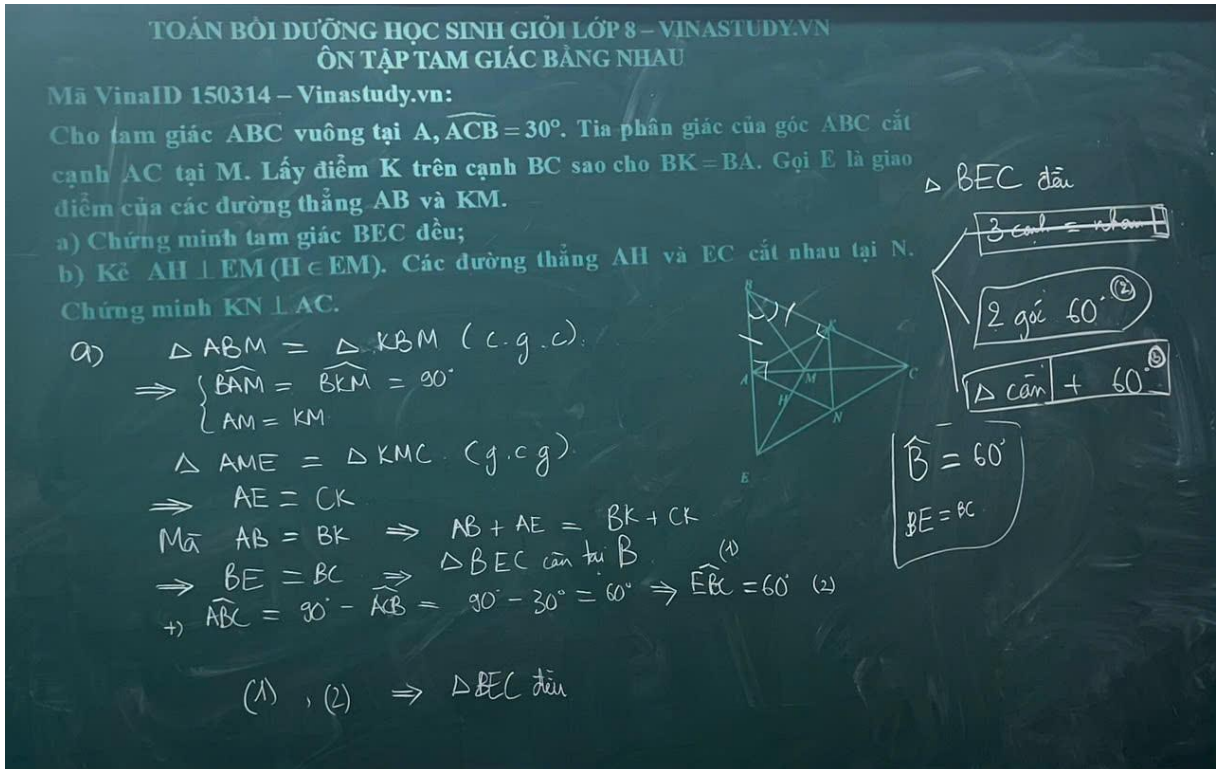 TOÁN BỒI DƯỠNG HỌC SINH GIỎI LỚP 8 – VINASTUDY.VN
ÔN TẬP TAM GIÁC BẰNG NHAU
Mã VinaID 150314 – Vinastudy.vn:
Cho tam giác ABC vuông tại A, ACB = 30°. Tia phân giác của góc ABC cắt
cạnh AC tại M. Lấy điểm K trên cạnh BC sao cho BK = BA. Gọi E là giao
điểm của các đường thẳng AB và KM.
a) Chứng minh tam giác BEC đều;
b) Kẻ AH ⊥ EM (H ∈ EM). Các đường thẳng AH và EC cắt nhau tại N.
Chứng minh KN ⊥ AC.
a) Δ ABM = Δ KBM (c.g.c).
⇒ { BAM = BKM = 90°
AM = KM
Δ AME = Δ KMC (g.c.g).
⇒ AE = CK
Mà AB = BK ⇒ AB + AE = BK + CK
⇒ BE = BC ⇒ Δ BEC cân tại B (1)
+) ABC = 90° - ACB = 90° - 30° = 60° ⇒ EBC = 60° (2)
(1), (2) ⇒ Δ BEC đều
B
K
A
M
C
H
N
E
Δ BEC đều
3 cạnh = nhau
2 góc 60° (2)
Δ cân + 60°
B = 60°
BE = BC